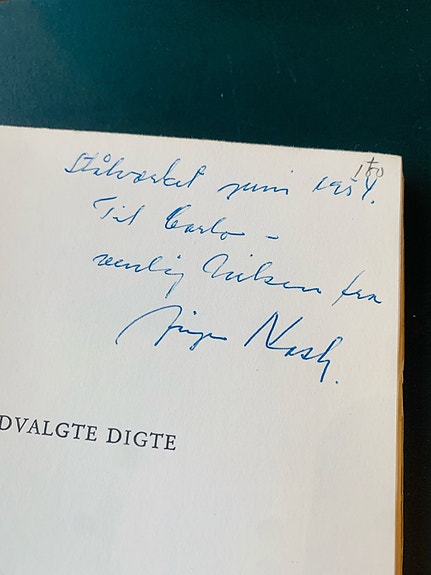 Stålværket juni 1954.
Til Carlo –
venlig hilsen fra
Jørgen Nash.
DVALGTE DIGTE